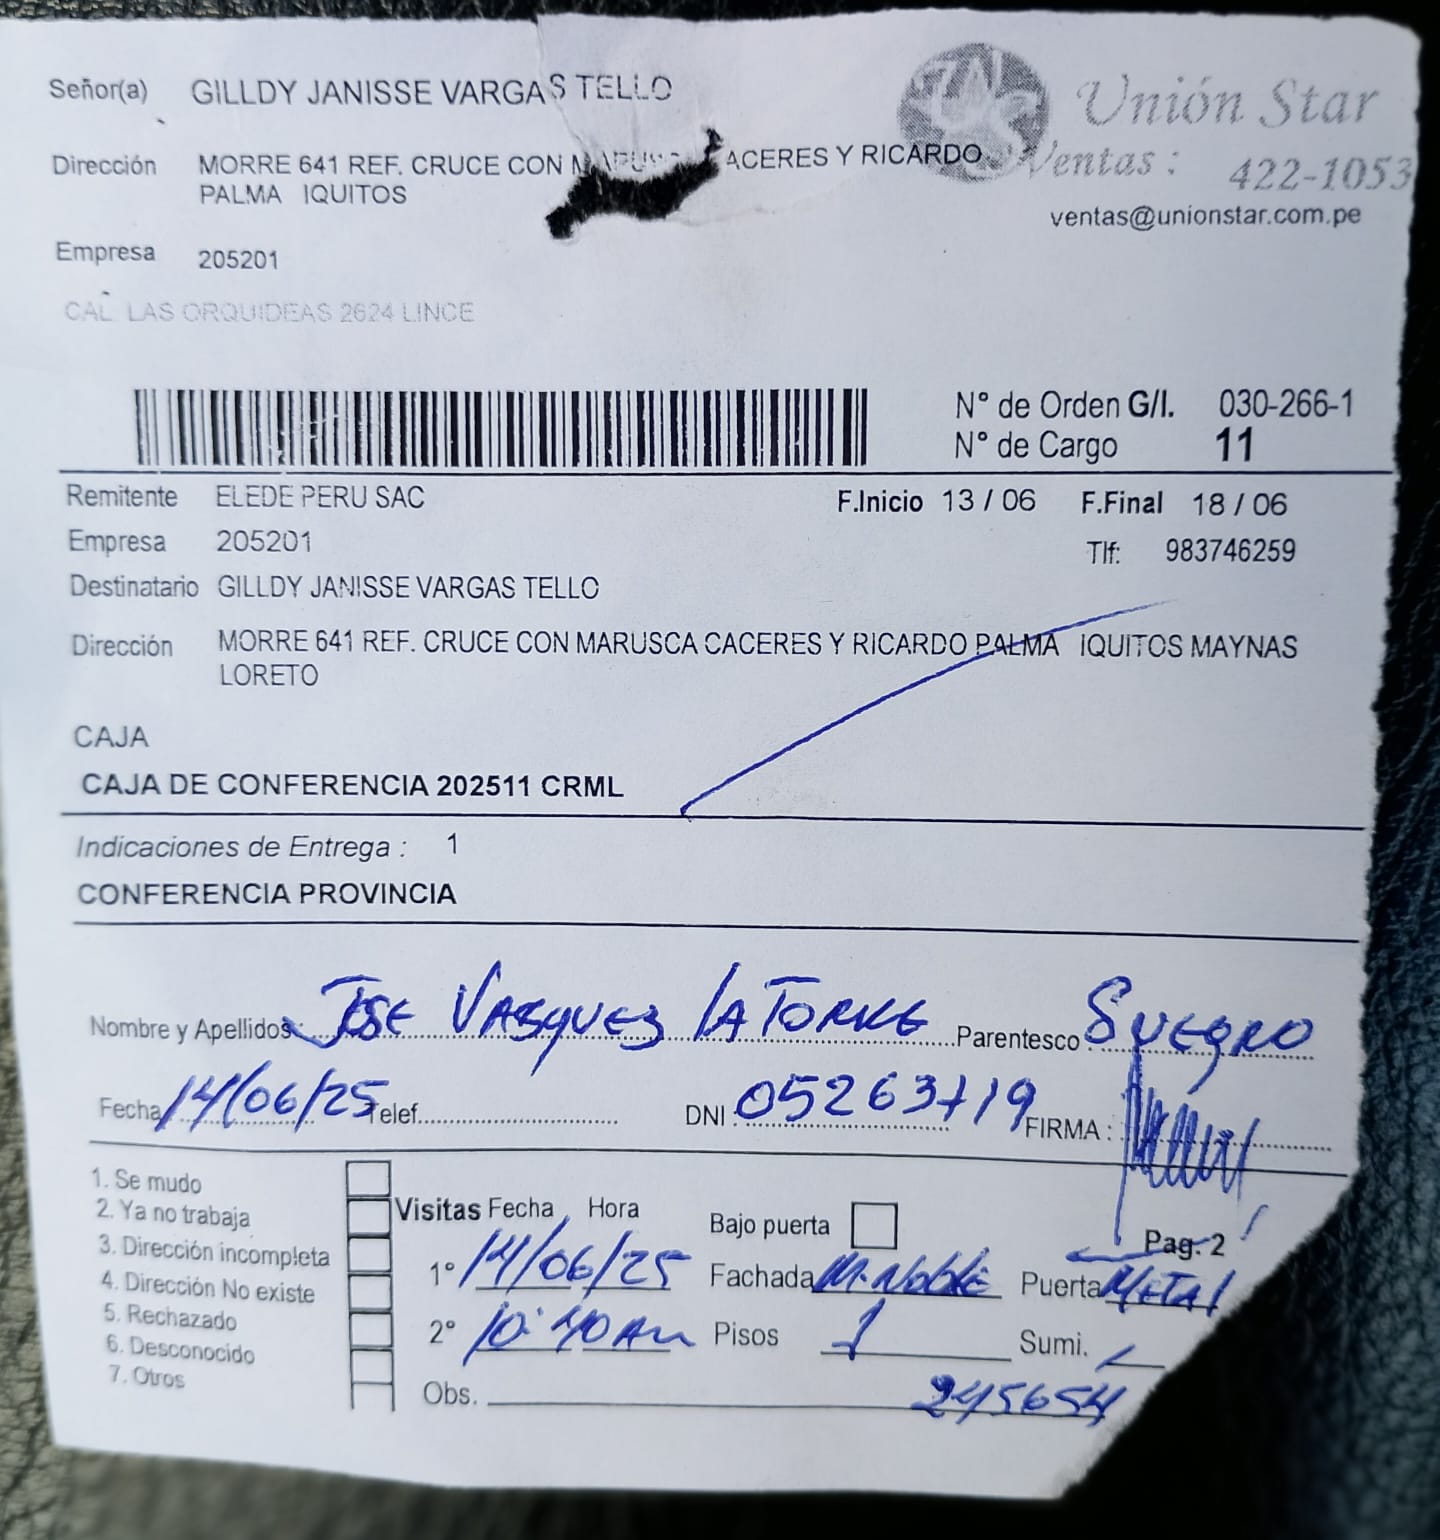 Señor(a) GILLDY JANISSE VARGAS TELLO
Unión Star
Dirección MORRE 641 REF. CRUCE CON ACERES Y RICARDO
PALMA IQUITOS
Ventas : 422-1053
ventas@unionstar.com.pe
Empresa 205201
CAL LAS ORQUIDEAS 2624 LINCE
N° de Orden G/I. 030-266-1
N° de Cargo 11
Remitente ELEDE PERU SAC F.Inicio 13 / 06 F.Final 18 / 06
Empresa 205201 Tlf: 983746259
Destinatario GILLDY JANISSE VARGAS TELLO
Dirección MORRE 641 REF. CRUCE CON MARUSCA CACERES Y RICARDO PALMA IQUITOS MAYNAS
LORETO
CAJA
CAJA DE CONFERENCIA 202511 CRML
Indicaciones de Entrega : 1
CONFERENCIA PROVINCIA
Nombre y Apellidos JOSE VASQUEZ LA TORRE Parentesco SUEGRO
Fecha 14/06/25 Telef. DNI 05263719 FIRMA :
1. Se mudo
2. Ya no trabaja
3. Dirección incompleta
4. Dirección No existe
5. Rechazado
6. Desconocido
7. Otros
Visitas Fecha Hora Bajo puerta Pag. 2
1° 14/06/25 Fachada M. Noble Puerta METAL
2° 10:40 AM Pisos 1 Sumi.
Obs. 245654